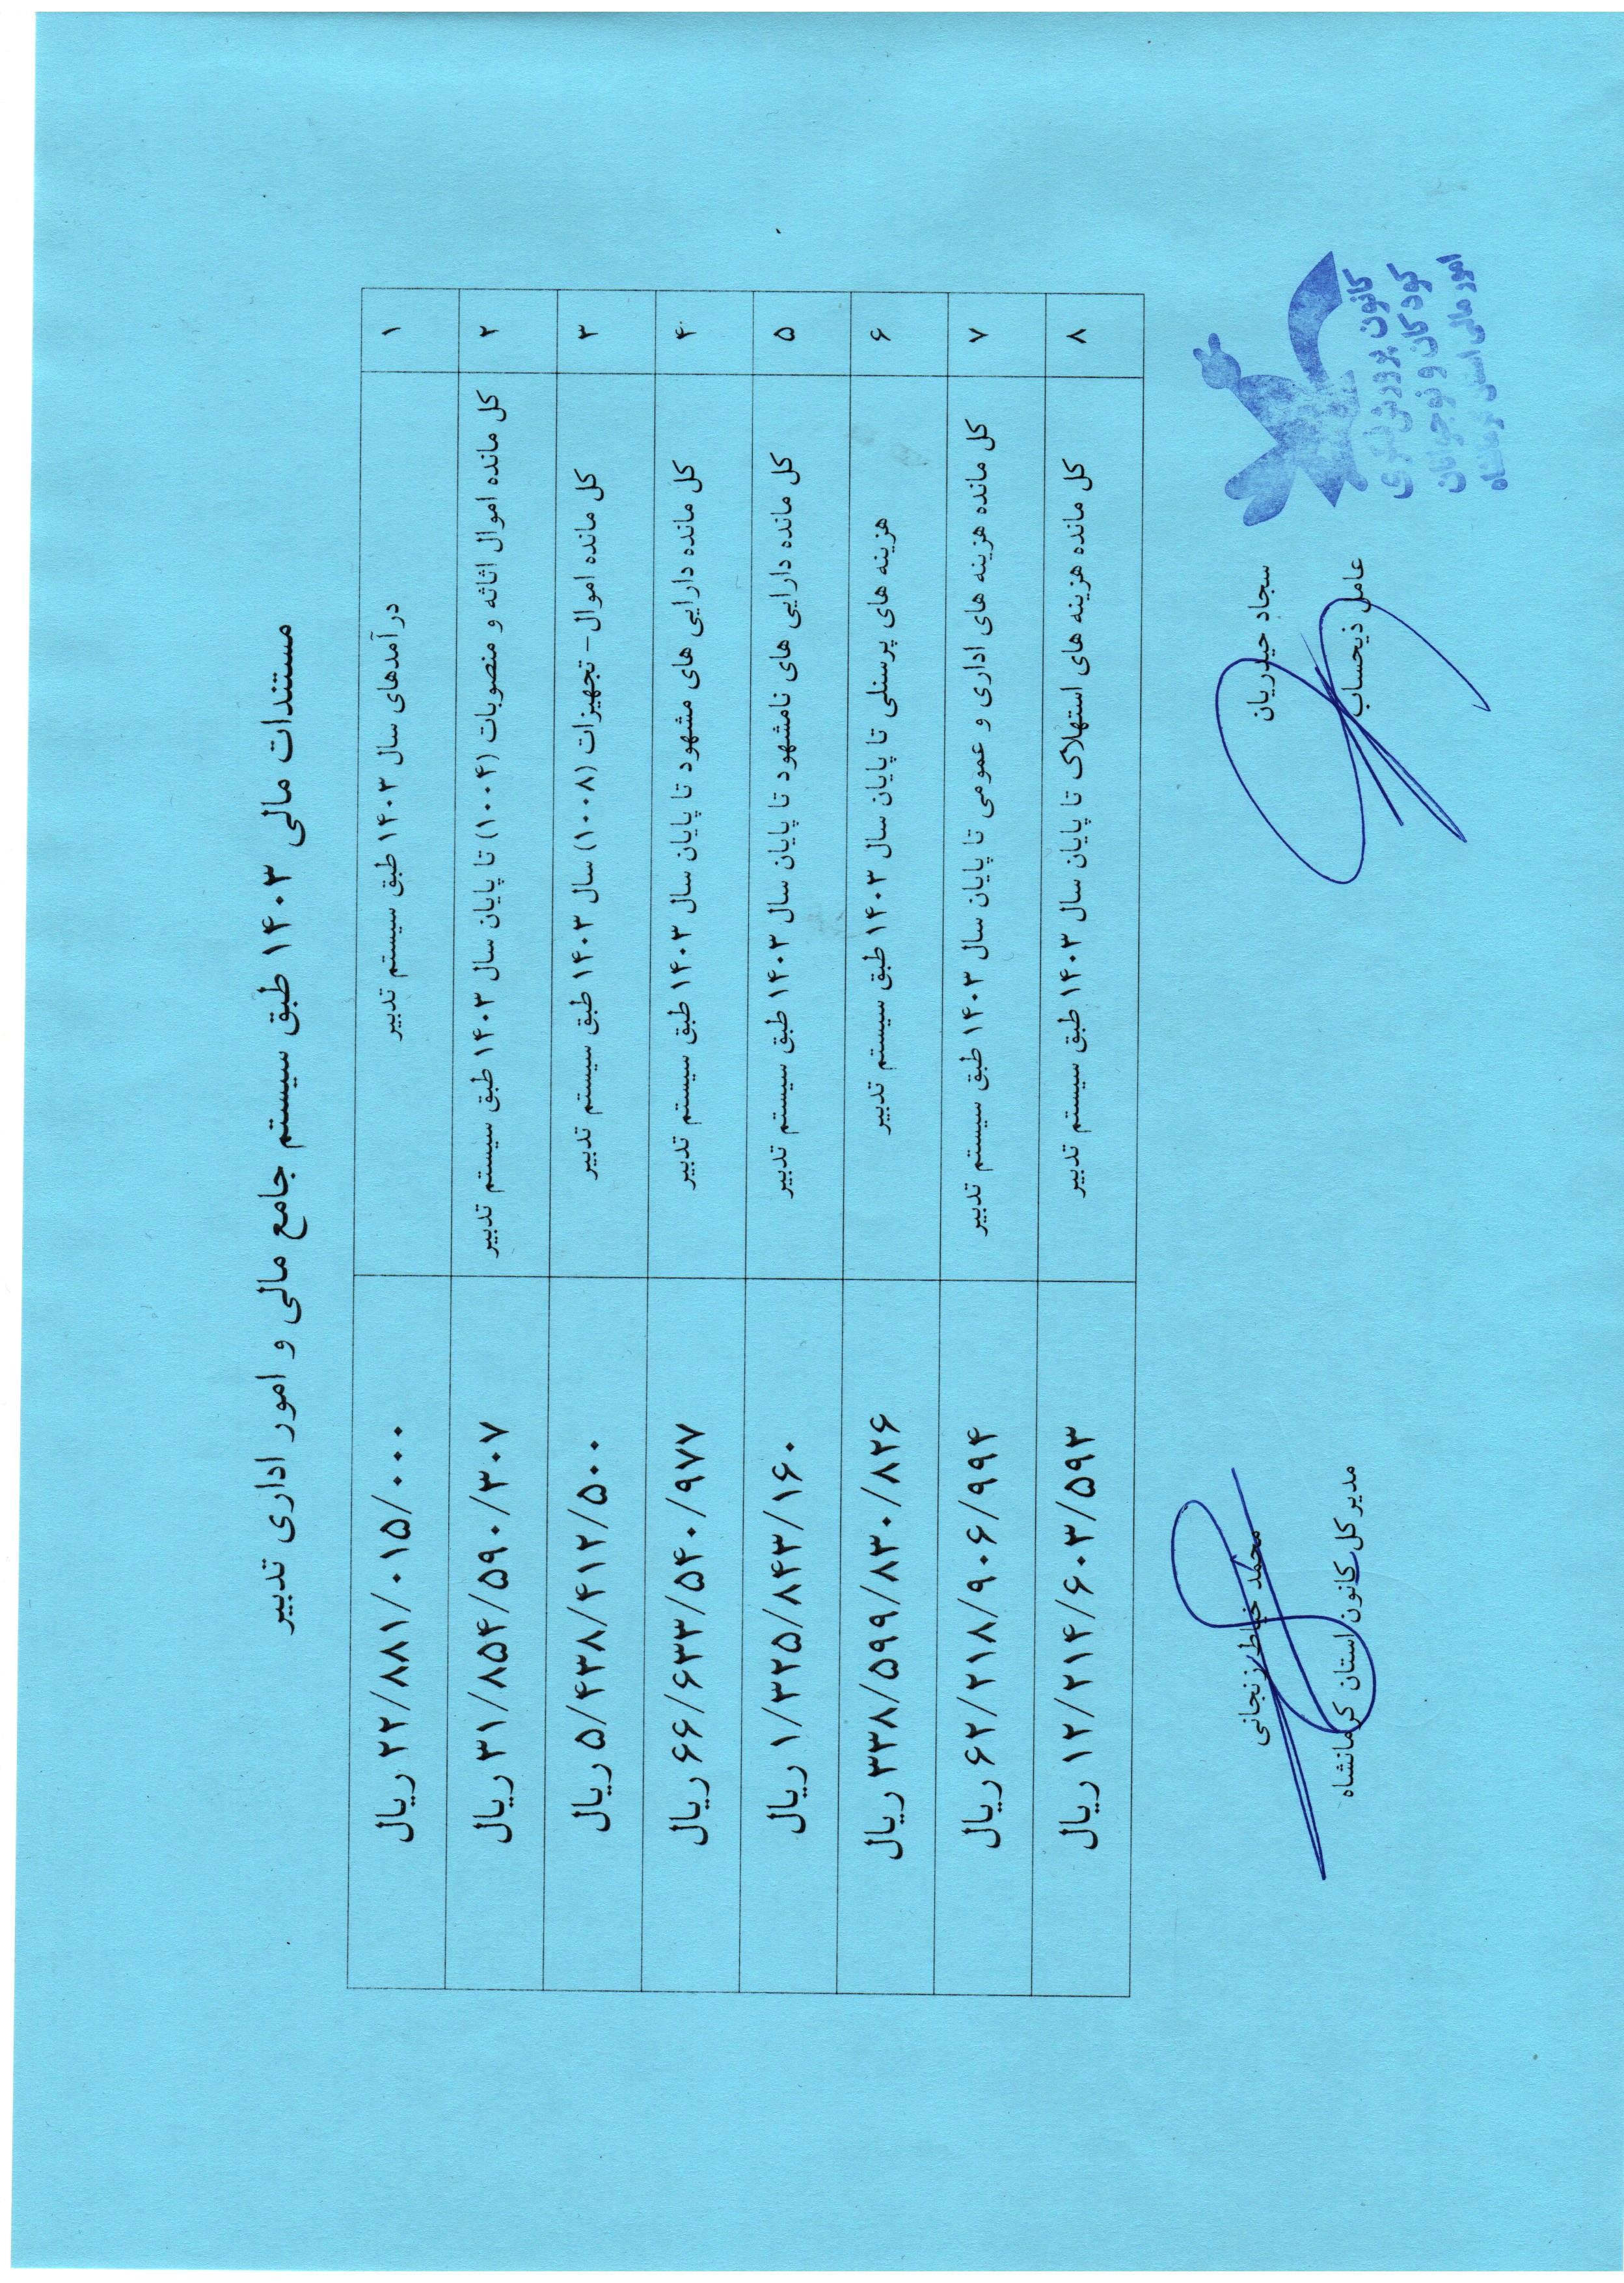 مستندات مالی ۱۴۰۳ طبق سیستم جامع مالی و امور اداری تدبیر
۱ درآمدهای سال ۱۴۰۳ طبق سیستم تدبیر ۲۲/۸۸۱/۰۱۵/۰۰۰ ریال
۲ کل مانده اموال اثاثه و منصوبات (۱۰۰۴) تا پایان سال ۱۴۰۳ طبق سیستم تدبیر ۳۱/۸۵۴/۵۹۰/۳۰۷ ریال
۳ کل مانده اموال- تجهیزات (۱۰۰۸) سال ۱۴۰۳ طبق سیستم تدبیر ۵/۴۳۸/۴۱۲/۵۰۰ ریال
۴ کل مانده دارایی های مشهود تا پایان سال ۱۴۰۳ طبق سیستم تدبیر ۶۶/۶۳۳/۵۴۰/۹۷۷ ریال
۵ کل مانده دارایی های نامشهود تا پایان سال ۱۴۰۳ طبق سیستم تدبیر ۱/۳۲۵/۸۴۳/۱۶۰ ریال
۶ هزینه های پرسنلی تا پایان سال ۱۴۰۳ طبق سیستم تدبیر ۳۳۸/۵۹۹/۸۳۰/۸۲۶ ریال
۷ کل مانده هزینه های اداری و عمومی تا پایان سال ۱۴۰۳ طبق سیستم تدبیر ۶۲/۲۱۸/۹۰۶/۹۹۴ ریال
۸ کل مانده هزینه های استهلاک تا پایان سال ۱۴۰۳ طبق سیستم تدبیر ۱۲/۲۱۴/۶۰۳/۵۹۳ ریال
سجاد حیدریان
عامل ذیحساب
محمد خیاط زنجانی
مدیر کل کانون استان کرمانشاه
کانون پرورش فکری
کودکان و نوجوانان
امور مالی استان کرمانشاه